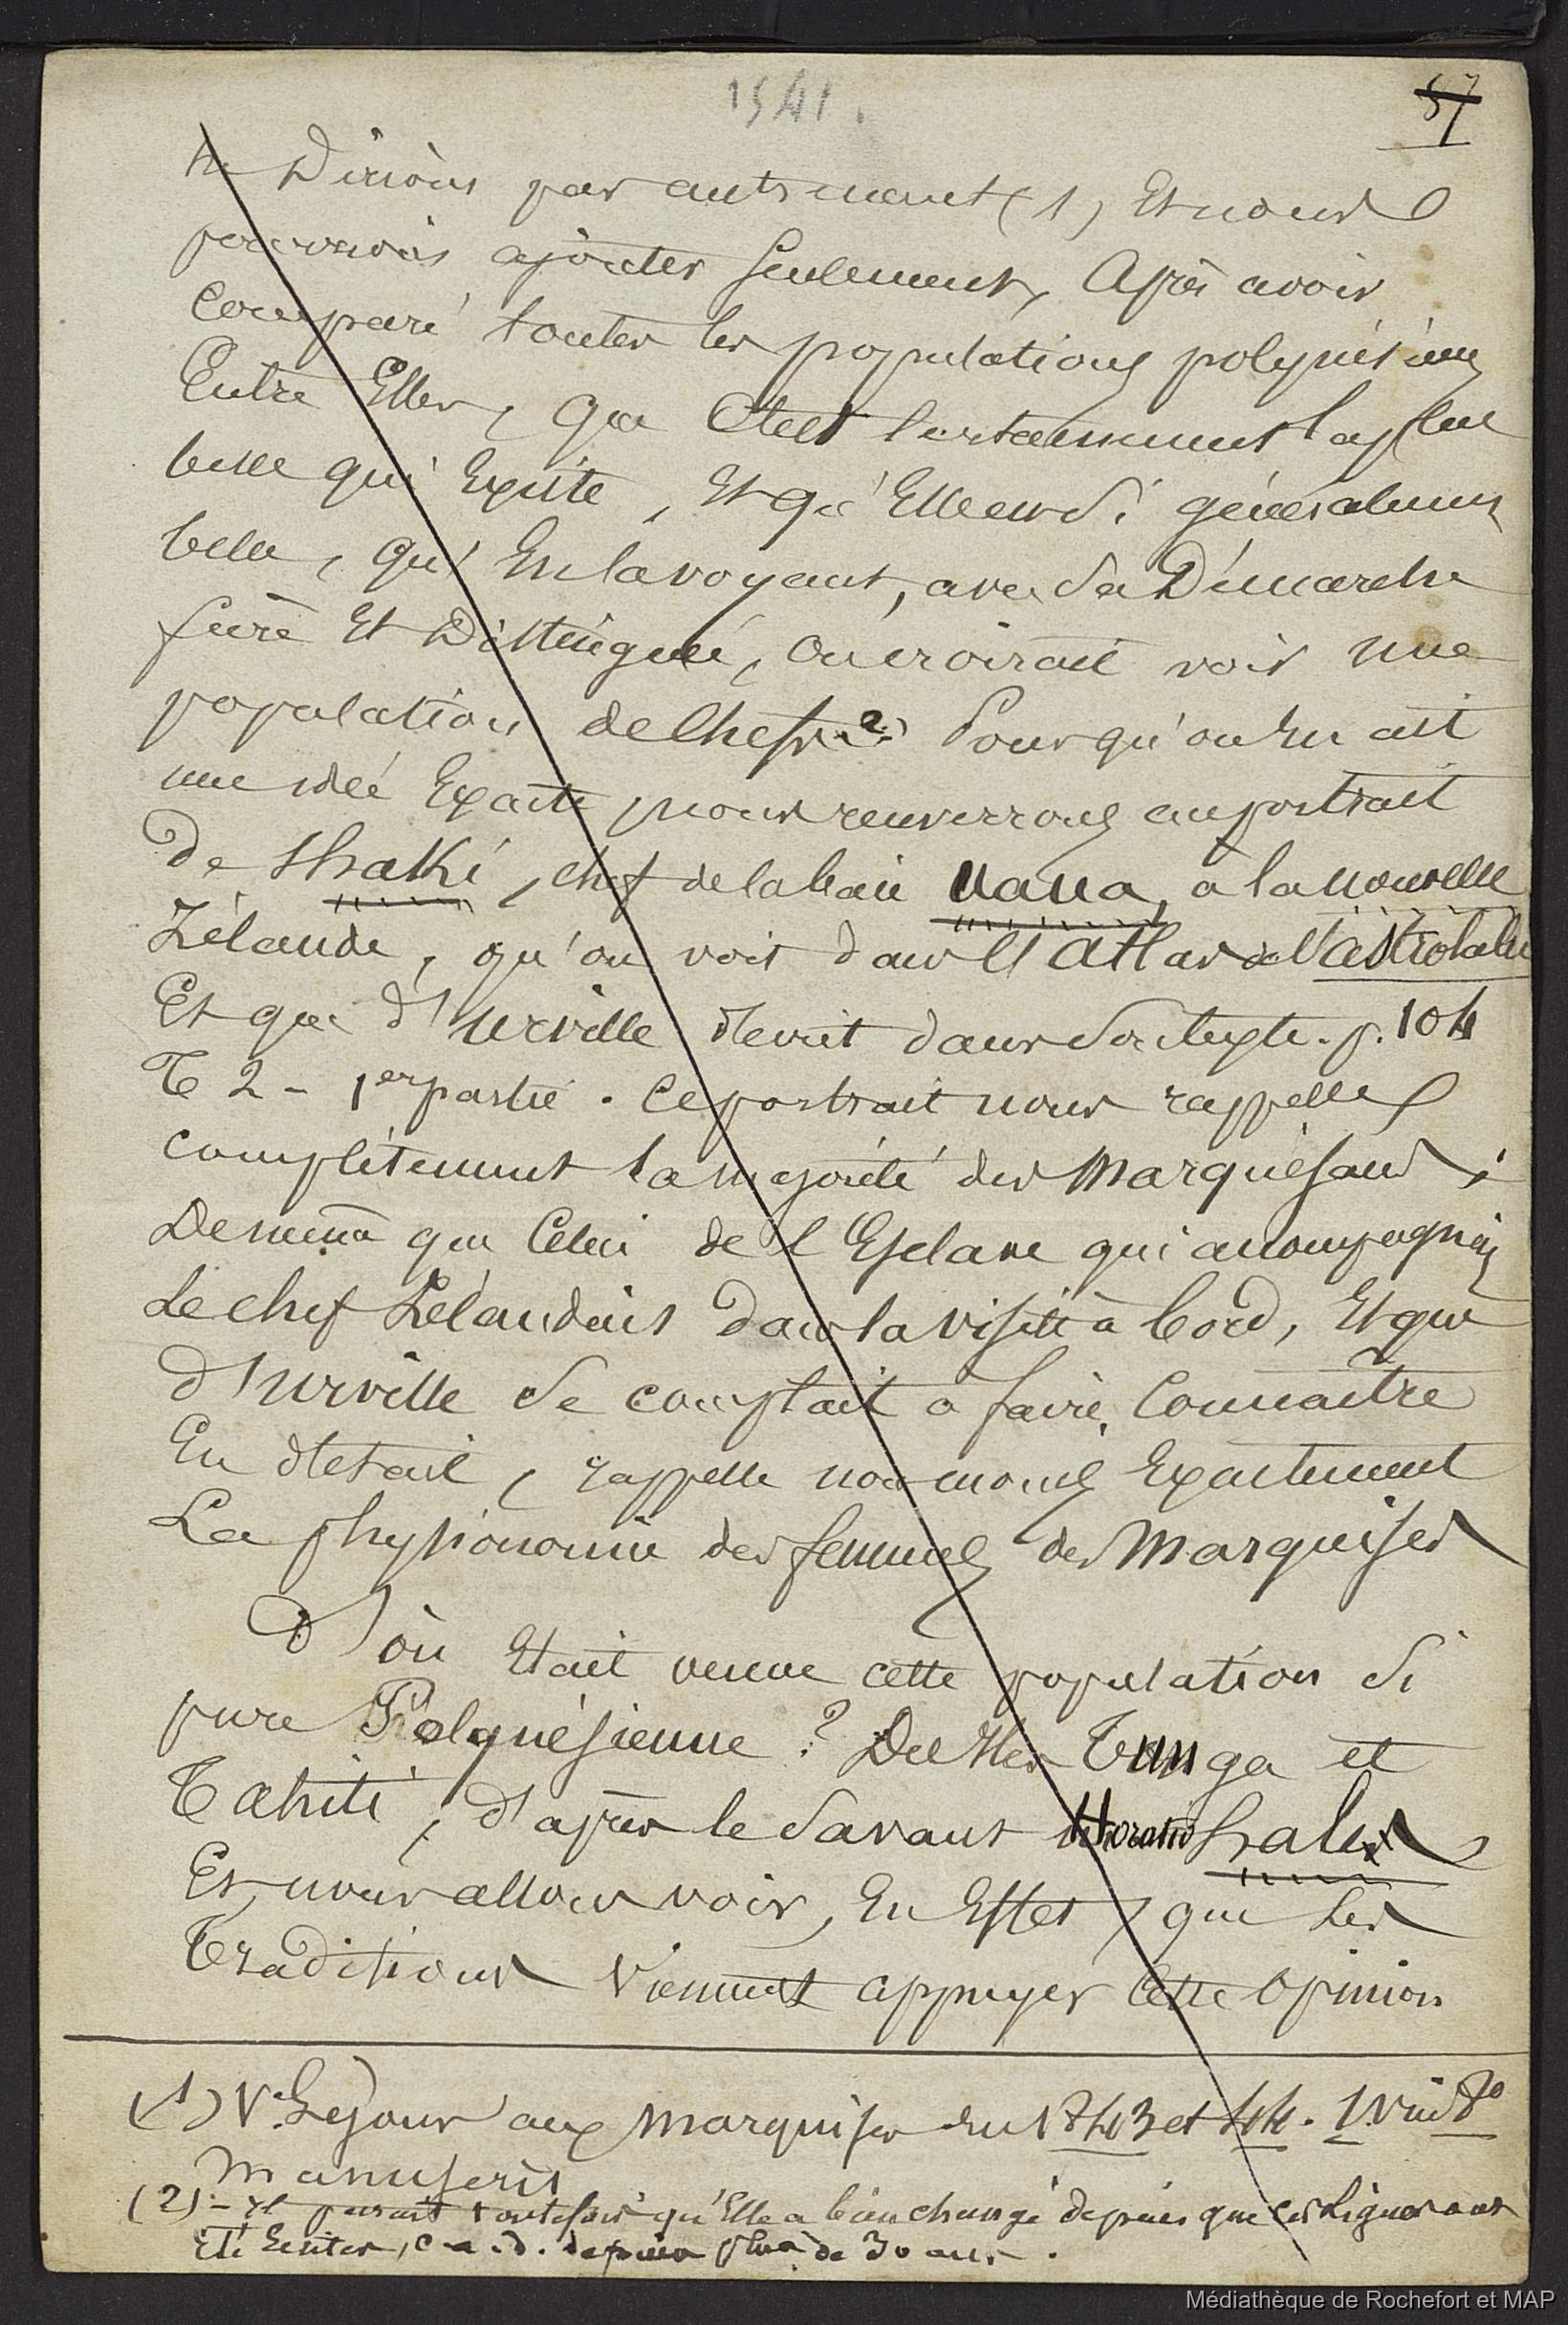 1541.
57
ne Dirions pas autrement (1) Et nous
pouvons ajouter seulement, Après avoir
Comparé toutes les populations polynésiennes
Entre Elles, que C'est Certainement la plus
belle qui Existe, Et qu'Elle est Si généralement
belle, qu'En la voyant, avec Sa Démarche
fière Et Distinguée, On croirait voir une
population de Chefs (2) Pour qu'on En ait
une idée Exacte nous renverrons au portrait
De Shaki, chef de la baie Uaua, à la nouvelle
Zélande, qu'on voit dans l'Atlas de l'astrolabe
Et que d'urville décrit dans Son texte. p. 104
T 2 - 1er partie. Ce portrait nous rappelle
complètement la majorité des Marquésans;
De même que Celui de l'Esclave qui accompagnait
Le chef Zélandais dans la visite à bord, Et que
d'urville Se comptait à faire Connaître
En détail, rappelle non moins Exactement
La physionomie des femmes des Marquises
D'où Etait venue cette population Si
pure Polynésienne? Des Iles Tunga et
Tahiti, d'après le Savant Horatio hale
Et nous allons voir, En Effet, que Les
Traditions Viennent appuyer Cette opinion
(1) V. Séjour aux Marquises En 1843 et 44. 1 Vol in 8°
Manuscrit
(2) - Il parait toutefois qu'Elle a bien changé depuis que ces Lignes ont
Eté Ecrites, c-a-d. depuis plus de 30 ans.
Médiathèque de Rochefort et MAP